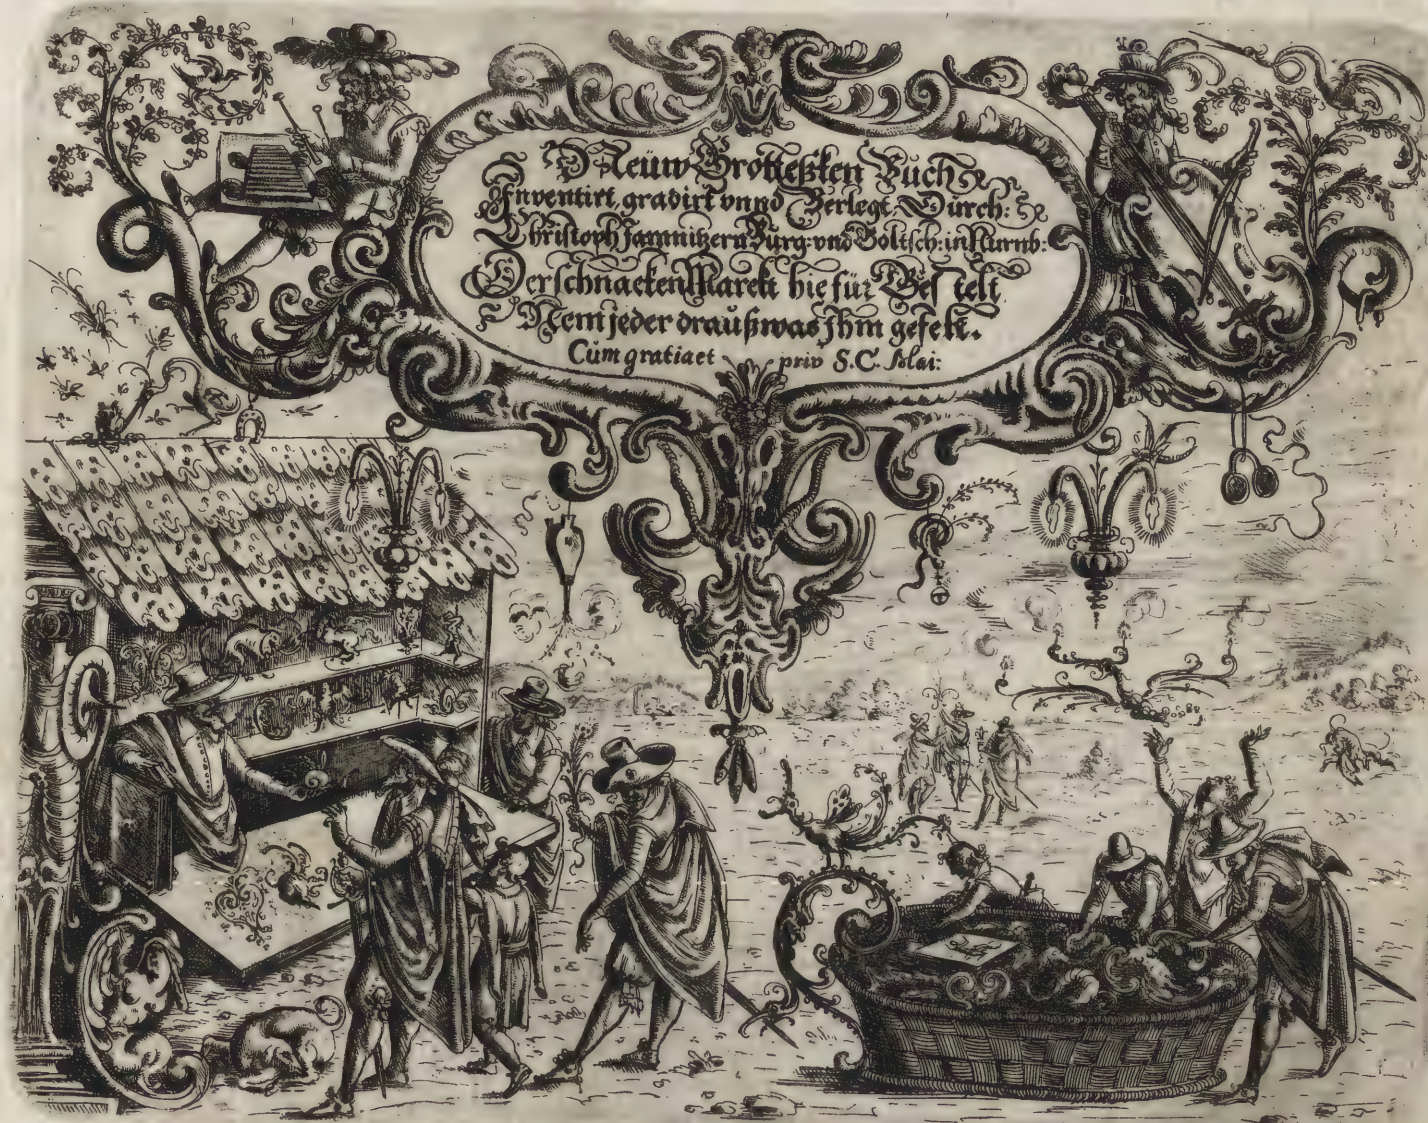 Neüw Grotteßken Buch
Inventirt gradirt vnnd Verlegt Durch:
Christoph Jamnitzern Burg: vnd Goltsch: in Nurnb:
Der schnacken Marckt hie für Gestelt
Nem jeder drauß was Ihm gefelt.
Cum gratia et priv S. C. Mai: